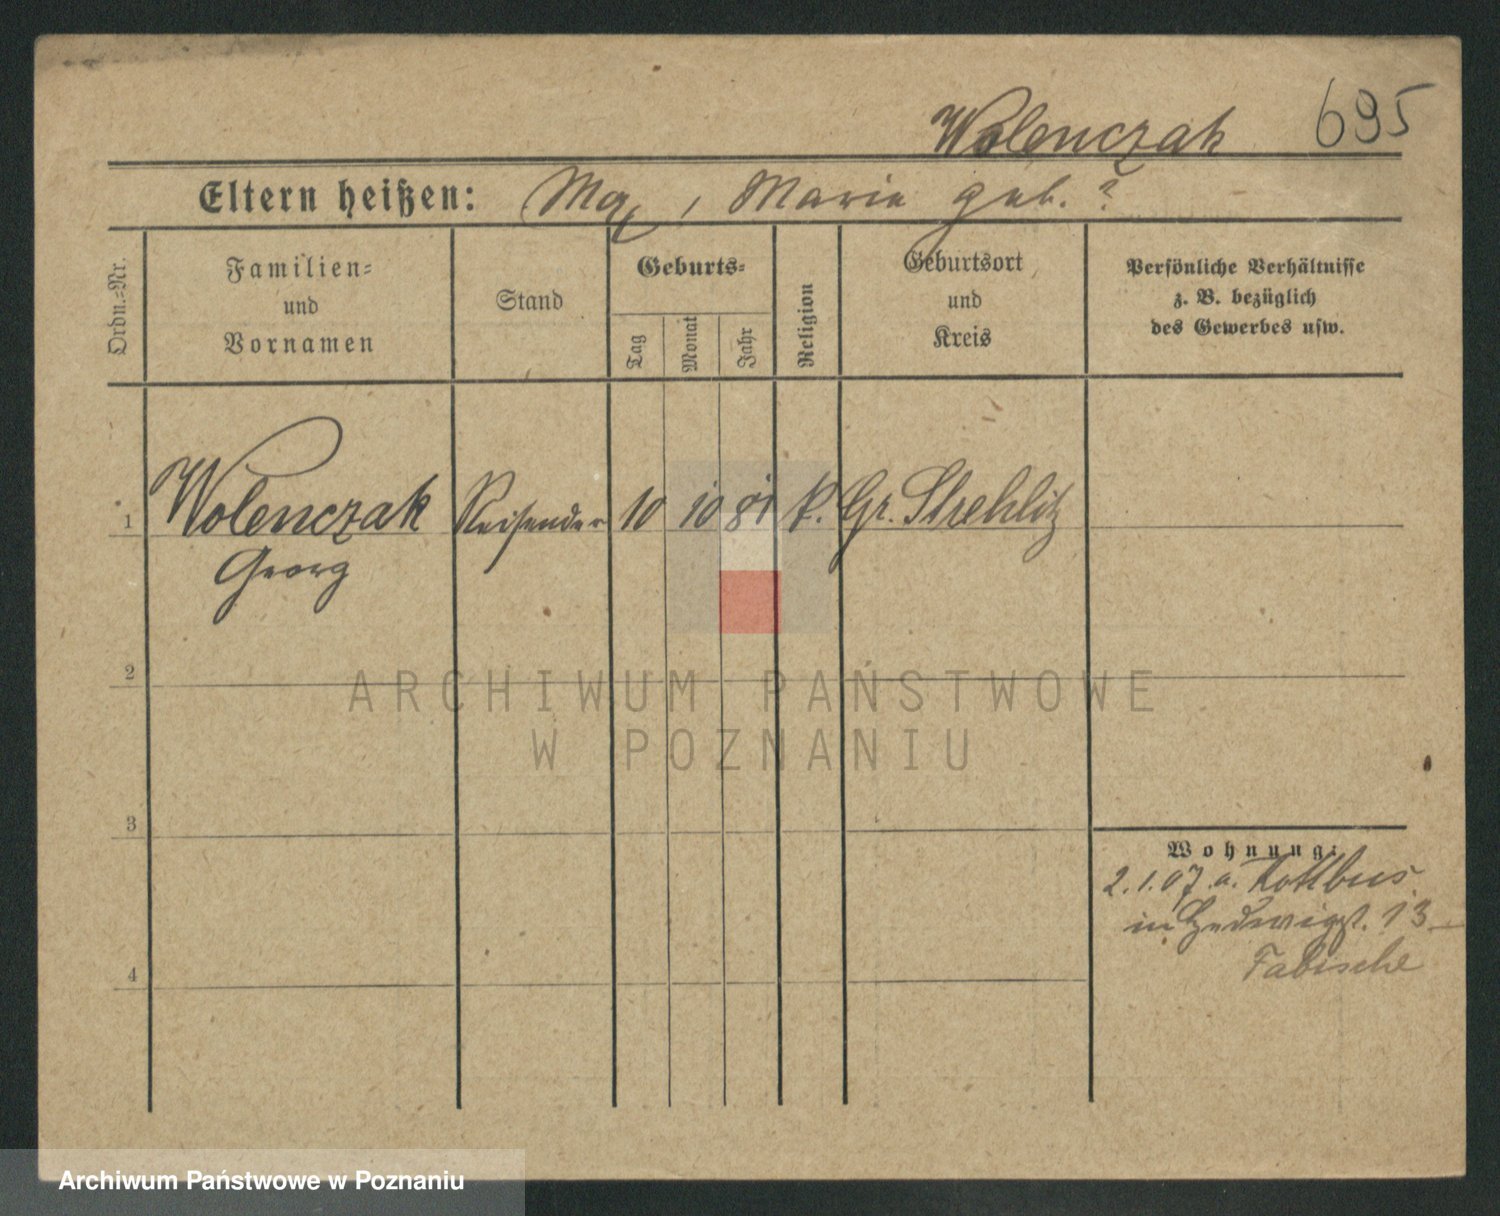 Wolenczak 695
Eltern heißen: Max, Marie geb. ?
Ordn.-Nr.
Familien-
und
Vornamen
Stand
Geburts-
Tag
Monat
Jahr
Religion
Geburtsort
und
Kreis
Persönliche Verhältnisse
z. B. bezüglich
des Gewerbes usw.
1 Wolenczak Reisender 10 10 81 k. Gr. Strehlitz
Georg
2
3
4
Wohnung:
2.1.07 a. Kottbus
in Hedwigst. 13
Fabische
ARCHIWUM PAŃSTWOWE
W POZNANIU
Archiwum Państwowe w Poznaniu